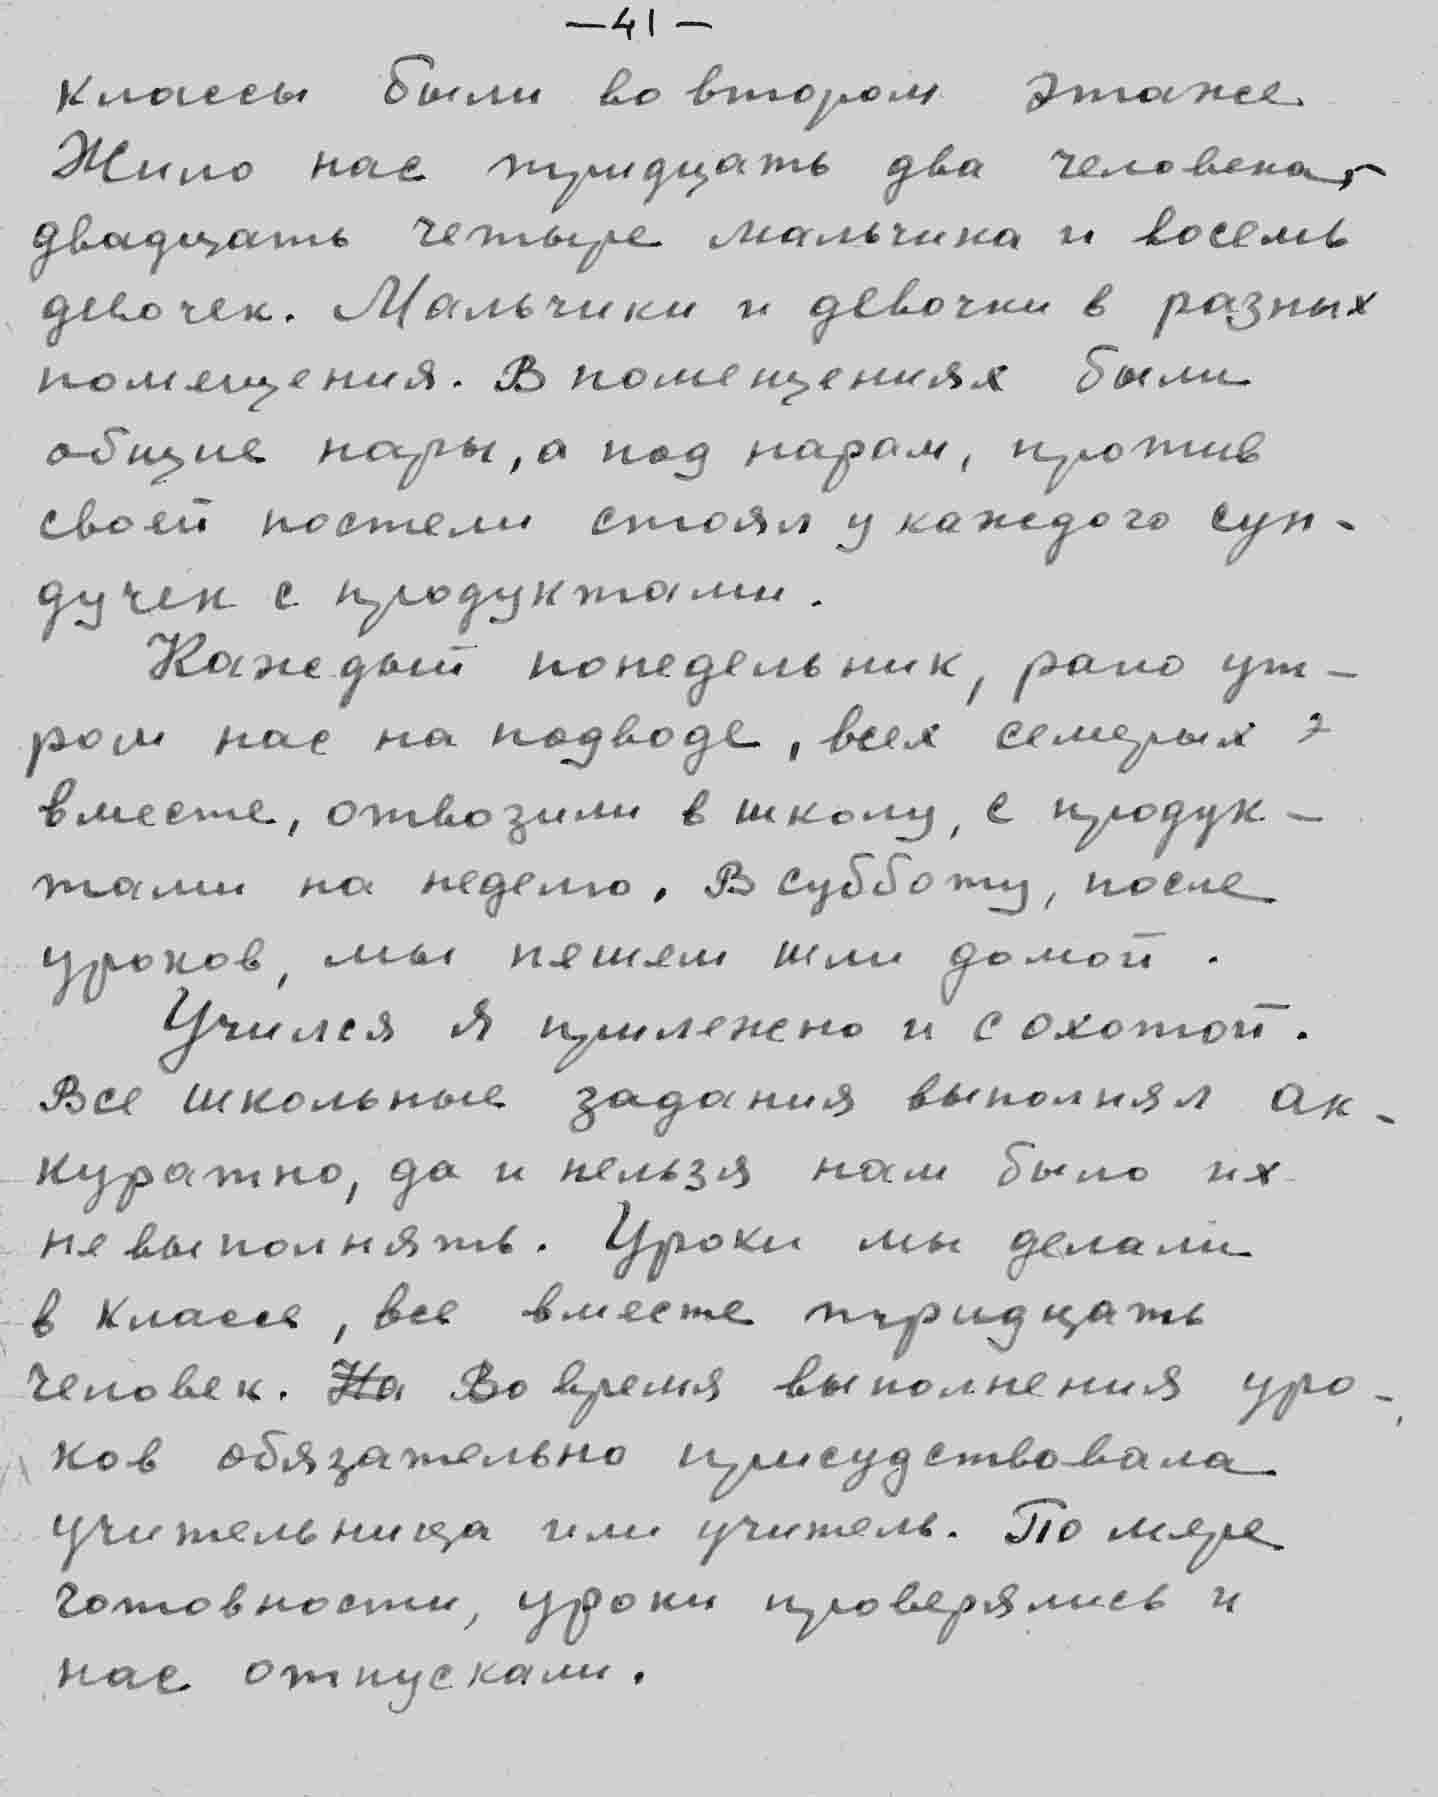 —41—
классы были во втором этаже
Жило нас тридцать два человека,
двадцать четыре мальчика и восемь
девочек. Мальчики и девочки в разных
помещения. В помещениях были
общие нары, а под нарам, против
своей постели стоял у каждого сун-
дучек с продуктами.
Каждый понедельник, рано ут-
ром нас на подводе, всех семерых
вместе, отвозили в школу, с продук-
тами на неделю. В субботу, после
уроков, мы пешем шли домой.
Учился я прилежно и с охотой.
Все школьные задания выполнял ак-
куратно, да и нельзя нам было их
не выполнять. Уроки мы делали
в классе, все вместе тридцать
человек. На Во время выполнения уро-
ков обязательно присудствовала
учительница или учитель. По мере
готовности, уроки проверялись и
нас отпускали.